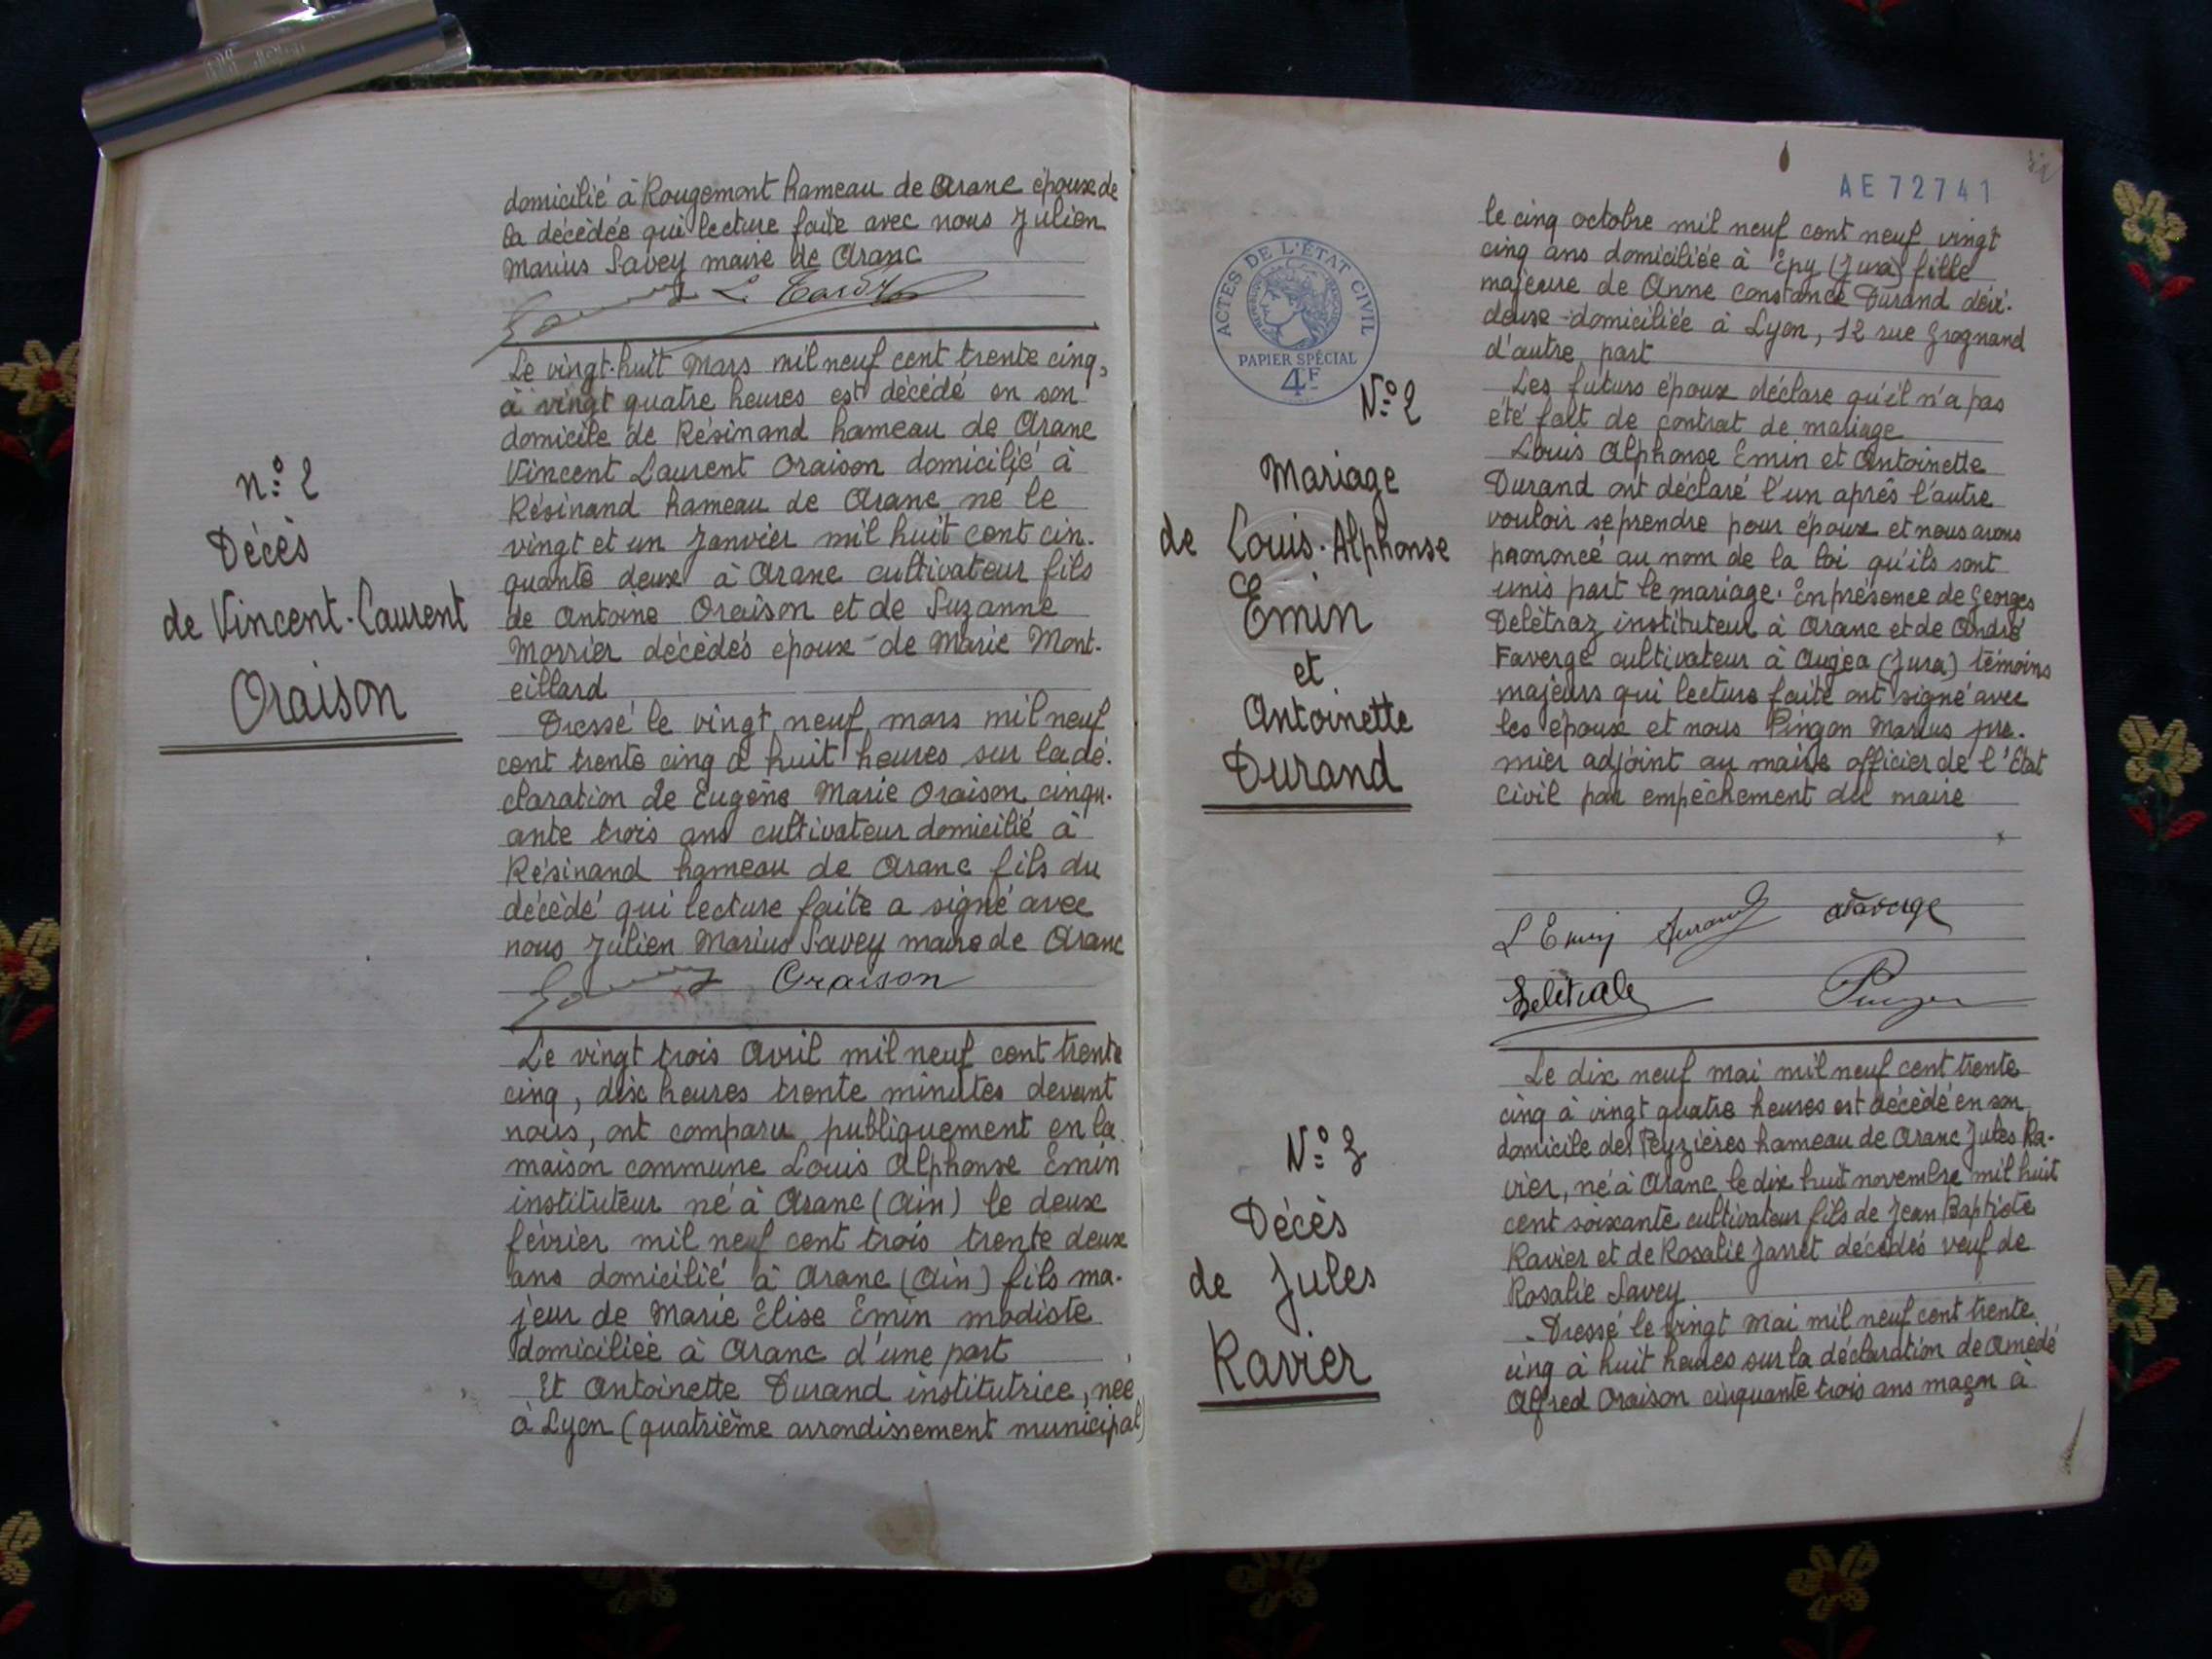 domicilié à Rougemont hameau de Aranc époux de
la décédée qui lecture faite avec nous Julien
Marius Savey maire de Aranc
n.º 2
Décès
de Vincent-Laurent
Oraison
Le vingt-huit Mars mil neuf cent trente cinq,
à vingt quatre heures est décédé en son
domicile de Résinand hameau de Aranc
Vincent Laurent Oraison domicilié à
Résinand hameau de Aranc né le
vingt et un Janvier mil huit cent cin-
quante deux à Aranc cultivateur fils
de Antoine Oraison et de Suzanne
Morrier décédés époux de Marie Mont-
eillard
Dressé le vingt neuf mars mil neuf
cent trente cinq à huit heures sur la dé-
claration de Eugène Marie Oraison, cinqu-
ante trois ans cultivateur domicilié à
Résinand hameau de Aranc fils du
décédé qui lecture faite a signé avec
nous Julien Marius Savey maire de Aranc
Oraison
Le vingt trois Avril mil neuf cent trente
cinq, dix heures trente minutes devant
nous, ont comparu publiquement en la
maison commune Louis Alphonse Emin
instituteur né à Aranc (Ain) le deux
février mil neuf cent trois trente deux
ans domicilié à Aranc (Ain) fils ma-
jeur de Marie Elise Emin modiste
domiciliée à Aranc d'une part
Et Antoinette Durand institutrice, née
à Lyon (quatrième arrondissement municipal)
AE72741
ACTES DE L'ÉTAT CIVIL
PAPIER SPÉCIAL
4F
N.º 2
Mariage
de Louis-Alphonse
Emin
et
Antoinette
Durand
le cinq octobre mil neuf cent neuf vingt
cinq ans domiciliée à Epy (Jura) fille
majeure de Anne Constance Durand dévi-
deuse domiciliée à Lyon, 12 rue Grognand
d'autre part
Les futurs époux déclare qu'il n'a pas
été fait de contrat de mariage
Louis Alphonse Emin et Antoinette
Durand ont déclaré l'un après l'autre
vouloir se prendre pour époux et nous avons
prononcé au nom de la loi qu'ils sont
unis part le mariage. En présence de Georges
Delétraz instituteur à Aranc et de André
Faverge cultivateur à Augea (Jura) témoins
majeurs qui lecture faite ont signé avec
les époux et nous Pingon Marius pre-
mier adjoint au maire officier de l'Etat
civil par empêchement du maire
L Emin Durand AFaverge
N.º 3
Décès
de Jules
Ravier
Le dix neuf mai mil neuf cent trente
cinq à vingt quatre heures est décédé en son
domicile des Peyzières hameau de Aranc Jules Ra-
vier, né à Aranc le dix huit novembre mil huit
cent soixante cultivateur fils de Jean Baptiste
Ravier et de Rosalie Jarret décédés veuf de
Rosalie Savey
Dressé le vingt Mai mil neuf cent trente
cinq à huit heures sur la déclaration de Amédé
Alfred Oraison cinquante trois ans maçon à